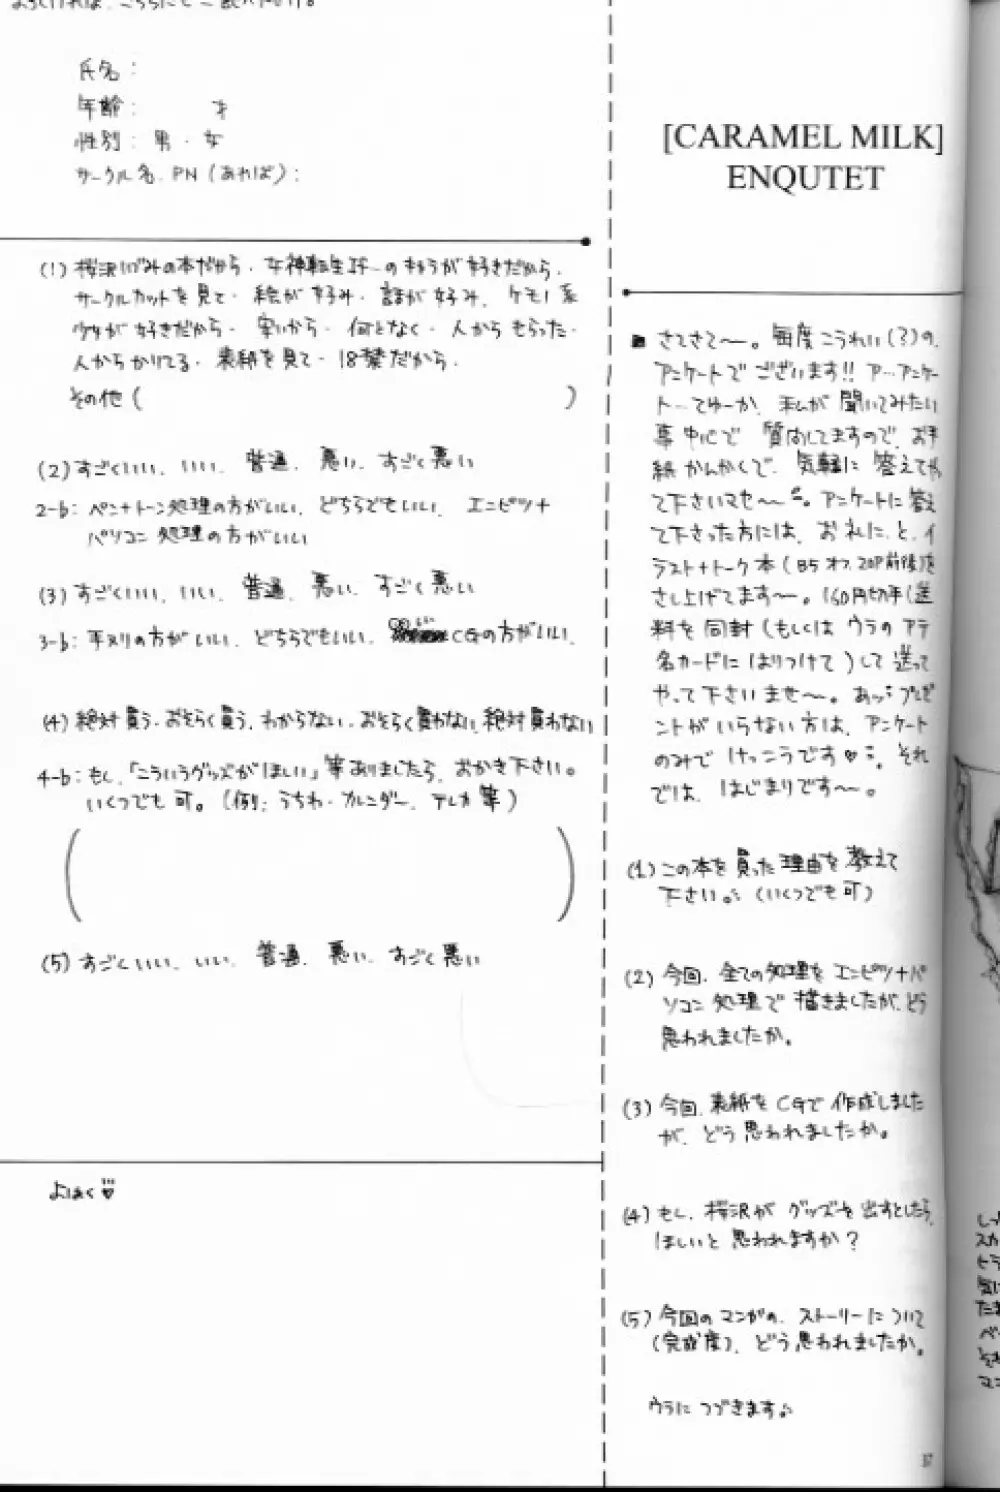 氏名:
年齢: 才
性別: 男・女
サークル名. PN (あれば):
(1) 桜沢いづみの本だから. 女神転生if…のキャラが好きだから.
サークルカットを見て. 絵が好み. 話が好み. ケモノ系
少年が好きだから. 安いから. 何となく. 人からもらった.
人からかりてる. 表紙を見て. 18禁だから.
その他 ( )
(2) すごくいい. いい. 普通. 悪い. すごく悪い
2-b: ペン+トーン処理の方がいい. どちらでもいい. エンピツ+
パソコン処理の方がいい
(3) すごくいい. いい. 普通. 悪い. すごく悪い
3-b: 手ヌリの方がいい. どちらでもいい. CGの方がいい.
(4) 絶対買う. おそらく買う. わからない. おそらく買わない. 絶対買わない
4-b: もし、「こういうグッズがほしい」等ありましたら、おかき下さい。
いくつでも可。(例: うちわ・カレンダー、テレカ等)
(5) すごくいい. いい. 普通. 悪い. すごく悪い
よはく♡
[CARAMEL MILK]
ENQUTET
■ さてさて〜。毎度こうれい(?)の、
アンケートでございます!! ア…アンケー
ト…てゆーか、私が聞いてみたい
事中心で質問してますので、お手
紙かんかくで、気軽に答えてや
って下さいマセ〜。アンケートに答え
て下さった方には、お礼に、と、イ
ラスト+トーク本(B5オフ20P前後)を
さし上げてます〜。160円切手(送
料を同封(もしくはウラのアテ
名カードにはりつけて)して送って
やって下さいませ〜。あっ、プレゼ
ントがいらない方は、アンケート
のみでけっこうです♡。それ
では、はじまりです〜。
(1) この本を買った理由を教えて
下さい。(いくつでも可)
(2) 今回、全ての処理をエンピツ+パ
ソコン処理で描きましたが、どう
思われましたか。
(3) 今回、表紙をCGで作成しました
が、どう思われましたか。
(4) もし、桜沢がグッズを出すとしたら、
ほしいと思われますか?
(5) 今回のマンガの、ストーリーについて
(完成度)、どう思われましたか。
ウラにつづきます♪
37